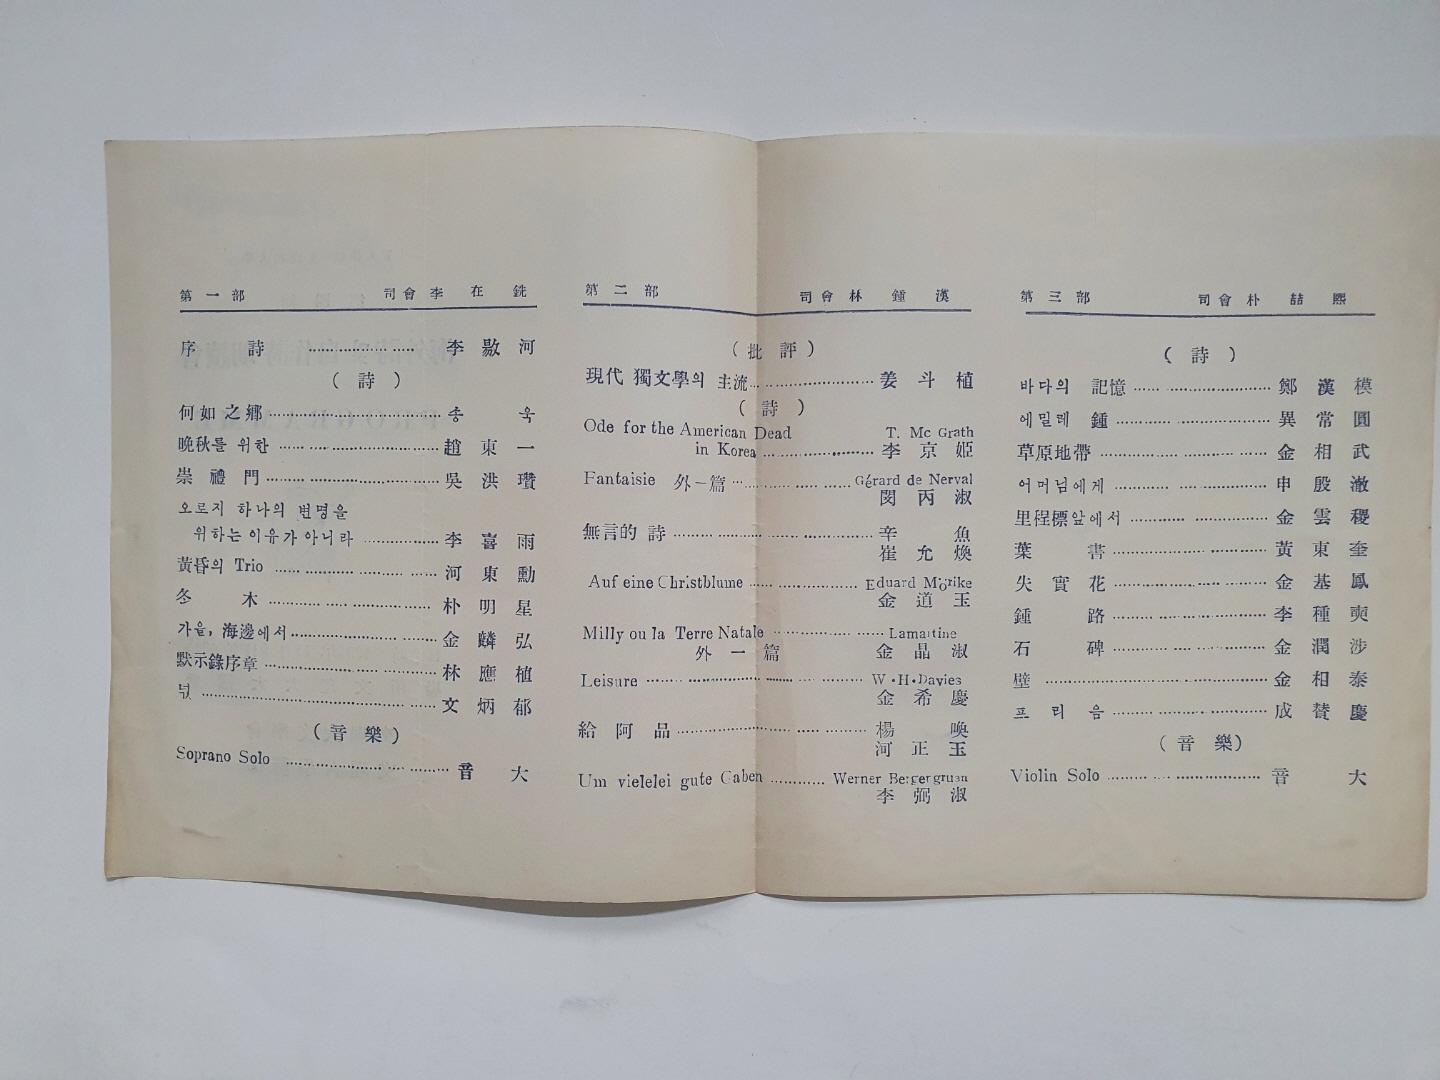 第一部 司會 李在銑
序詩 ........ 李敭河
(詩)
何如之鄕 ........ 송욱
晩秋를 위한 ........ 趙東一
崇禮門 ........ 吳洪瓚
오르지 하나의 변명을
위하는 이유가 아니라 ........ 李喜雨
黃昏의 Trio ........ 河東勳
冬木 ........ 朴明星
가을, 海邊에서 ........ 金麟弘
默示錄序章 ........ 林應植
넋 ........ 文炳郁
(音樂)
Soprano Solo ........ 音大
第二部 司會 林鍾漢
(批評)
現代 獨文學의 主流 ........ 姜斗植
(詩)
Ode for the American Dead T. Mc Grath
in Korea ........ 李京姬
Fantaisie 外一篇 ........ Gérard de Nerval
閔丙淑
無言的 詩 ........ 辛魚
崔允煥
Auf eine Christblume ........ Eduard Mörike
金道玉
Milly ou la Terre Natale ........ Lamartine
外一篇 金晶淑
Leisure ........ W.H.Davies
金希慶
給阿品 ........ 楊喚
河正玉
Um vielelei gute Gaben ........ Werner Bergergruan
李弼淑
第三部 司會 朴喆熙
(詩)
바다의 記憶 ........ 鄭漢模
에밀레 鍾 ........ 異常圓
草原地帶 ........ 金相武
어머님에게 ........ 申殷澈
里程標앞에서 ........ 金雲稷
葉書 ........ 黃東奎
失實花 ........ 金基鳳
鍾路 ........ 李種奭
石碑 ........ 金潤涉
壁 ........ 金相泰
프리음 ........ 成贊慶
(音樂)
Violin Solo ........ 音大